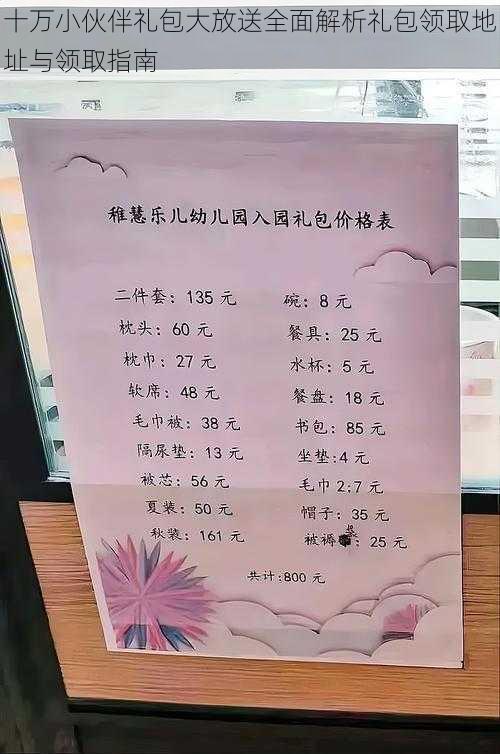 十万小伙伴礼包大放送全面解析礼包领取地
址与领取指南
稚慧乐儿幼儿园入园礼包价格表
二件套：135 元
枕头：60 元
枕巾：27 元
软席：48 元
毛巾被：38 元
隔尿垫：13 元
被芯：56 元
夏装：50 元
秋装：161 元
碗：8 元
餐具：25 元
水杯：5 元
餐盘：18 元
书包：85 元
坐垫:4 元
毛巾 2:7 元
帽子：35 元
被褥：25 元
共计:800 元